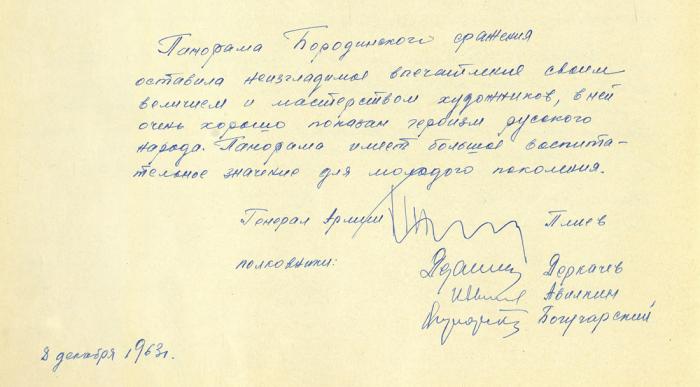 Панорама Бородинского сражения
оставила неизгладимое впечатление своим
величием и мастерством художников, в ней
очень хорошо показан героизм русского
народа. Панорама имеет большое воспита-
тельное значение для молодого поколения.
Генерал Армии Плиев
полковники: Деркачев
Авилкин
Богучарский
8 декабря 1963 г.